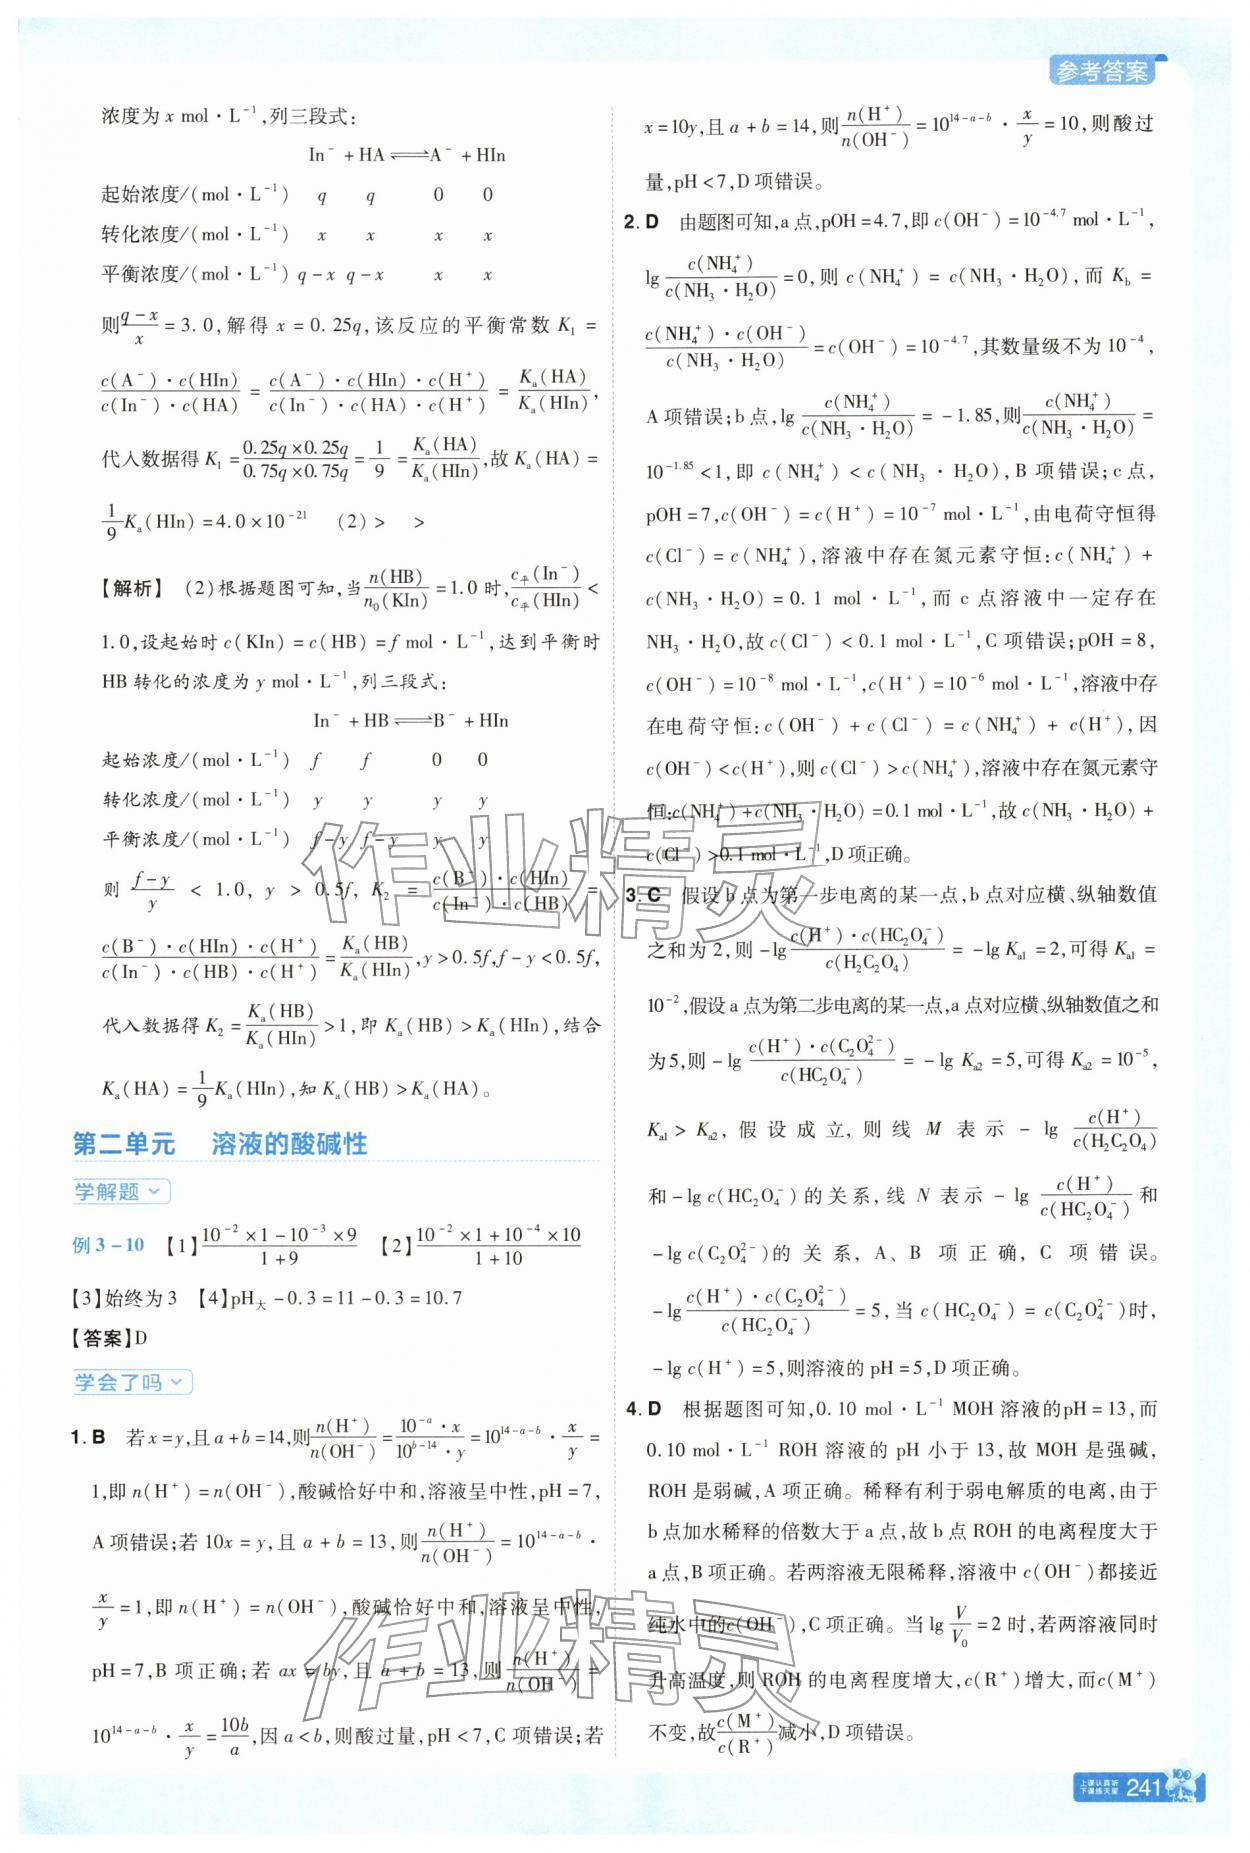 参考答案
浓度为 x mol·L⁻¹,列三段式:
In⁻ + HA ⇌ A⁻ + HIn
起始浓度/(mol·L⁻¹) q q 0 0
转化浓度/(mol·L⁻¹) x x x x
平衡浓度/(mol·L⁻¹) q-x q-x x x
则(q-x)/x = 3.0,解得 x = 0.25q,该反应的平衡常数 K₁ =
c(A⁻)·c(HIn)/[c(In⁻)·c(HA)] = c(A⁻)·c(HIn)·c(H⁺)/[c(In⁻)·c(HA)·c(H⁺)] = Kₐ(HA)/Kₐ(HIn),
代入数据得 K₁ = (0.25q×0.25q)/(0.75q×0.75q) = 1/9 = Kₐ(HA)/Kₐ(HIn),故 Kₐ(HA) =
1/9 Kₐ(HIn) = 4.0×10⁻²¹ (2)> >
【解析】 (2)根据题图可知,当n(HB)/n₀(KIn) = 1.0 时,c平(In⁻)/c平(HIn) <
1.0,设起始时 c(KIn) = c(HB) = f mol·L⁻¹,达到平衡时
HB 转化的浓度为 y mol·L⁻¹,列三段式:
In⁻ + HB ⇌ B⁻ + HIn
起始浓度/(mol·L⁻¹) f f 0 0
转化浓度/(mol·L⁻¹) y y y y
平衡浓度/(mol·L⁻¹) f-y f-y y y
则 (f-y)/y < 1.0, y > 0.5f, K₂ = c(B⁻)·c(HIn)/[c(In⁻)·c(HB)] =
c(B⁻)·c(HIn)·c(H⁺)/[c(In⁻)·c(HB)·c(H⁺)] = Kₐ(HB)/Kₐ(HIn),y>0.5f,f-y<0.5f,
代入数据得 K₂ = Kₐ(HB)/Kₐ(HIn) > 1,即 Kₐ(HB) > Kₐ(HIn),结合
Kₐ(HA) = 1/9 Kₐ(HIn),知 Kₐ(HB) > Kₐ(HA)。
第二单元 溶液的酸碱性
学解题
例 3-10 【1】(10⁻²×1-10⁻³×9)/(1+9) 【2】(10⁻²×1+10⁻⁴×10)/(1+10)
【3】始终为 3 【4】pH大-0.3=11-0.3=10.7
【答案】D
学会了吗
1. B 若 x=y,且 a+b=14,则n(H⁺)/n(OH⁻) = (10⁻ᵃ·x)/(10ᵇ⁻¹⁴·y) = 10¹⁴⁻ᵃ⁻ᵇ·x/y =
1,即 n(H⁺) = n(OH⁻),酸碱恰好中和,溶液呈中性,pH=7,
A 项错误;若 10x = y,且 a+b=13,则n(H⁺)/n(OH⁻) = 10¹⁴⁻ᵃ⁻ᵇ·
x/y = 1,即 n(H⁺) = n(OH⁻),酸碱恰好中和,溶液呈中性,
pH=7,B 项正确;若 ax = by,且 a+b=13,则n(H⁺)/n(OH⁻) =
10¹⁴⁻ᵃ⁻ᵇ·x/y = 10b/a,因 a<b,则酸过量,pH<7,C 项错误;若
x=10y,且 a+b=14,则n(H⁺)/n(OH⁻) = 10¹⁴⁻ᵃ⁻ᵇ·x/y = 10,则酸过
量,pH<7,D 项错误。
2. D 由题图可知,a 点,pOH=4.7,即 c(OH⁻)=10⁻⁴·⁷ mol·L⁻¹,
lg c(NH₄⁺)/c(NH₃·H₂O) = 0,则 c(NH₄⁺) = c(NH₃·H₂O),而 K_b =
c(NH₄⁺)·c(OH⁻)/c(NH₃·H₂O) = c(OH⁻) = 10⁻⁴·⁷,其数量级不为 10⁻⁴,
A 项错误;b 点,lg c(NH₄⁺)/c(NH₃·H₂O) = -1.85,则c(NH₄⁺)/c(NH₃·H₂O) =
10⁻¹·⁸⁵<1,即 c(NH₄⁺) < c(NH₃·H₂O),B 项错误;c 点,
pOH=7,c(OH⁻)=c(H⁺)=10⁻⁷ mol·L⁻¹,由电荷守恒得
c(Cl⁻)=c(NH₄⁺),溶液中存在氮元素守恒:c(NH₄⁺)+
c(NH₃·H₂O)=0.1 mol·L⁻¹,而 c 点溶液中一定存在
NH₃·H₂O,故 c(Cl⁻)<0.1 mol·L⁻¹,C 项错误;pOH=8,
c(OH⁻)=10⁻⁸ mol·L⁻¹,c(H⁺)=10⁻⁶ mol·L⁻¹,溶液中存
在电荷守恒:c(OH⁻)+c(Cl⁻)=c(NH₄⁺)+c(H⁺),因
c(OH⁻)<c(H⁺),则c(Cl⁻)>c(NH₄⁺),溶液中存在氮元素守
恒:c(NH₄⁺)+c(NH₃·H₂O)=0.1 mol·L⁻¹,故 c(NH₃·H₂O)+
c(Cl⁻)>0.1 mol·L⁻¹,D项正确。
3. C 假设 b 点为第一步电离的某一点,b 点对应横、纵轴数值
之和为 2,则 -lg c(H⁺)·c(HC₂O₄⁻)/c(H₂C₂O₄) = -lg Kₐ₁ = 2,可得 Kₐ₁ =
10⁻²,假设 a 点为第二步电离的某一点,a 点对应横、纵轴数值之和
为 5,则 -lg c(H⁺)·c(C₂O₄²⁻)/c(HC₂O₄⁻) = -lg Kₐ₂ = 5,可得 Kₐ₂ = 10⁻⁵,
Kₐ₁ > Kₐ₂,假设成立,则线 M 表示 -lg c(H⁺)/c(H₂C₂O₄)
和 -lg c(HC₂O₄⁻)的关系,线 N 表示 -lg c(H⁺)/c(HC₂O₄⁻)和
-lg c(C₂O₄²⁻)的关系,A、B 项正确,C 项错误。
-lg c(H⁺)·c(C₂O₄²⁻)/c(HC₂O₄⁻) = 5,当 c(HC₂O₄⁻) = c(C₂O₄²⁻)时,
-lg c(H⁺)=5,则溶液的 pH=5,D 项正确。
4. D 根据题图可知,0.10 mol·L⁻¹ MOH 溶液的pH=13,而
0.10 mol·L⁻¹ ROH 溶液的 pH 小于 13,故 MOH 是强碱,
ROH 是弱碱,A 项正确。稀释有利于弱电解质的电离,由于
b 点加水稀释的倍数大于 a 点,故 b 点 ROH 的电离程度大于
a 点,B 项正确。若两溶液无限稀释,溶液中 c(OH⁻)都接近
纯水中的c(OH⁻),C 项正确。当 lg V/V₀ = 2 时,若两溶液同时
升高温度,则 ROH 的电离程度增大,c(R⁺)增大,而c(M⁺)
不变,故c(M⁺)/c(R⁺)减小,D 项错误。
作业精灵
作业精灵
上课认真听
下课练天星
241